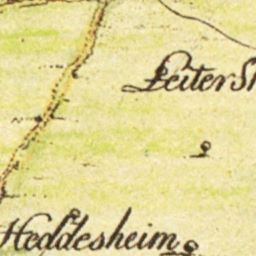 Leiters
Heddesheim